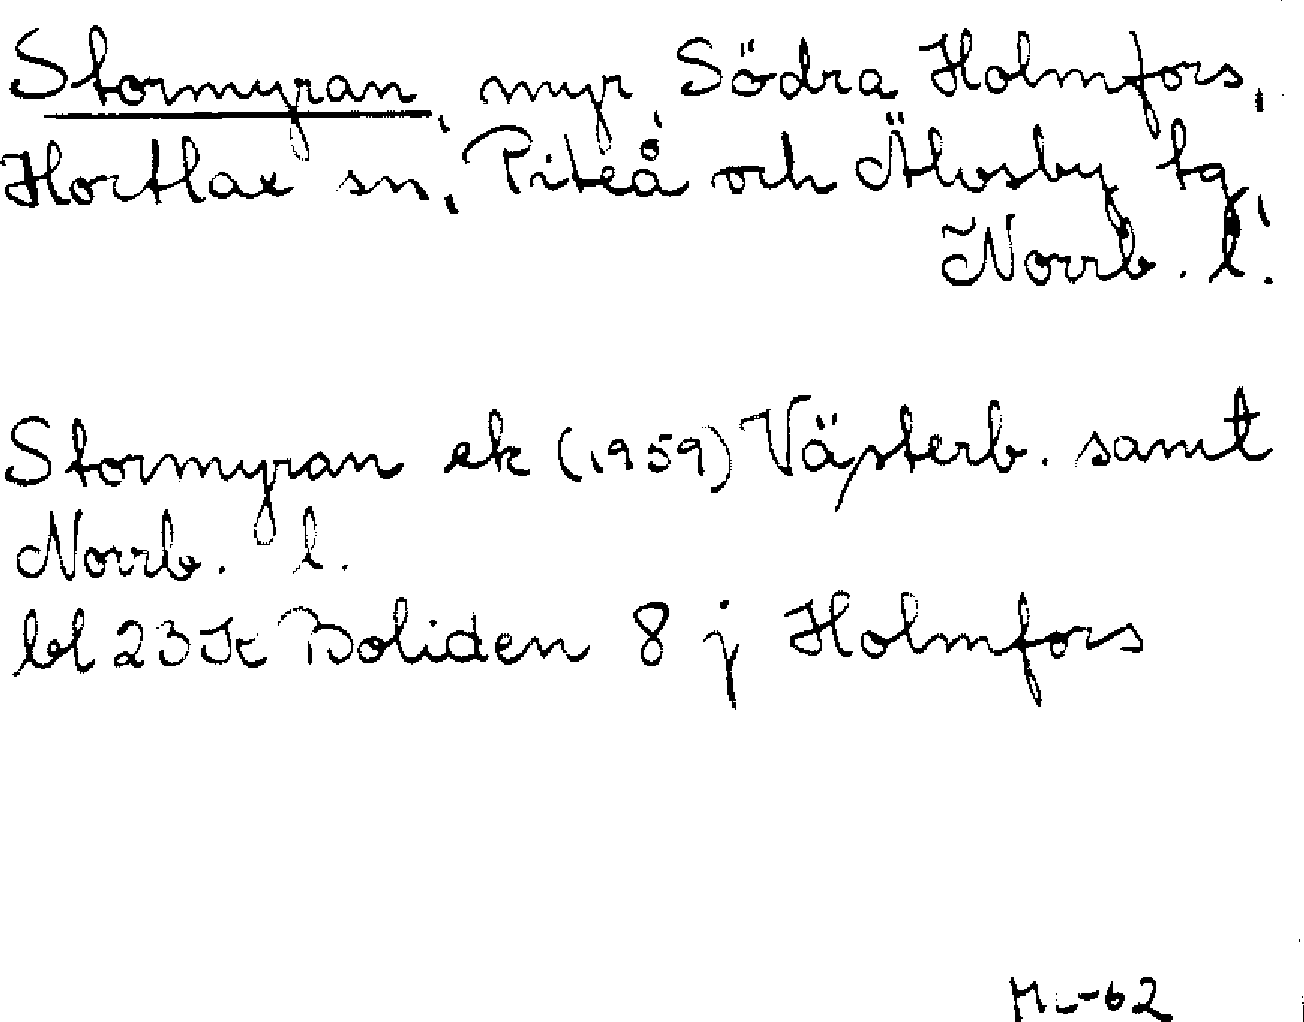 Stormyran, myr, Södra Holmfors,
Hortlax sn, Piteå och Älvsby tg,
Norrb. l.
Stormyran ek (1959) Västerb. samt
Norrb. l.
bl 23 K Boliden 8 j Holmfors
ML-62